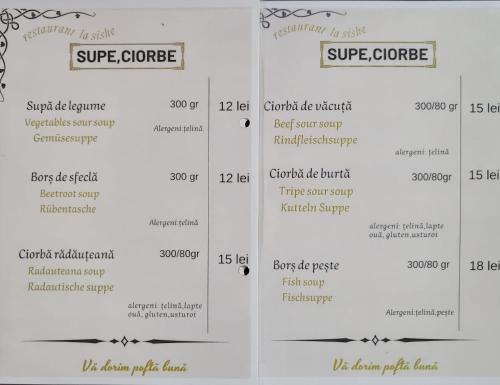 restaurant la sishe
SUPE,CIORBE
Supă de legume 300 gr 12 lei
Vegetables sour soup
Alergeni:țelină
Gemüsesuppe
Borș de sfeclă 300 gr 12 lei
Beetroot soup
Rübentasche
Alergeni:țelină
Ciorbă rădăuțeană 300/80 gr 15 lei
Radauteana soup
Radautische suppe
alergeni: țelină,lapte
ouă, gluten,usturoi
Vă dorim poftă bună
restaurant la sishe
SUPE,CIORBE
Ciorbă de văcuță 300/80 gr 15 lei
Beef sour soup
Rindfleischsuppe
alergeni: țelină
Ciorbă de burtă 300/80gr 15 lei
Tripe sour soup
Kutteln Suppe
alergeni: țelină,lapte
ouă, gluten,usturoi
Borș de pește 300/80 gr 18 lei
Fish soup
Fischsuppe
Alergeni:țelină,pește
Vă dorim poftă bună